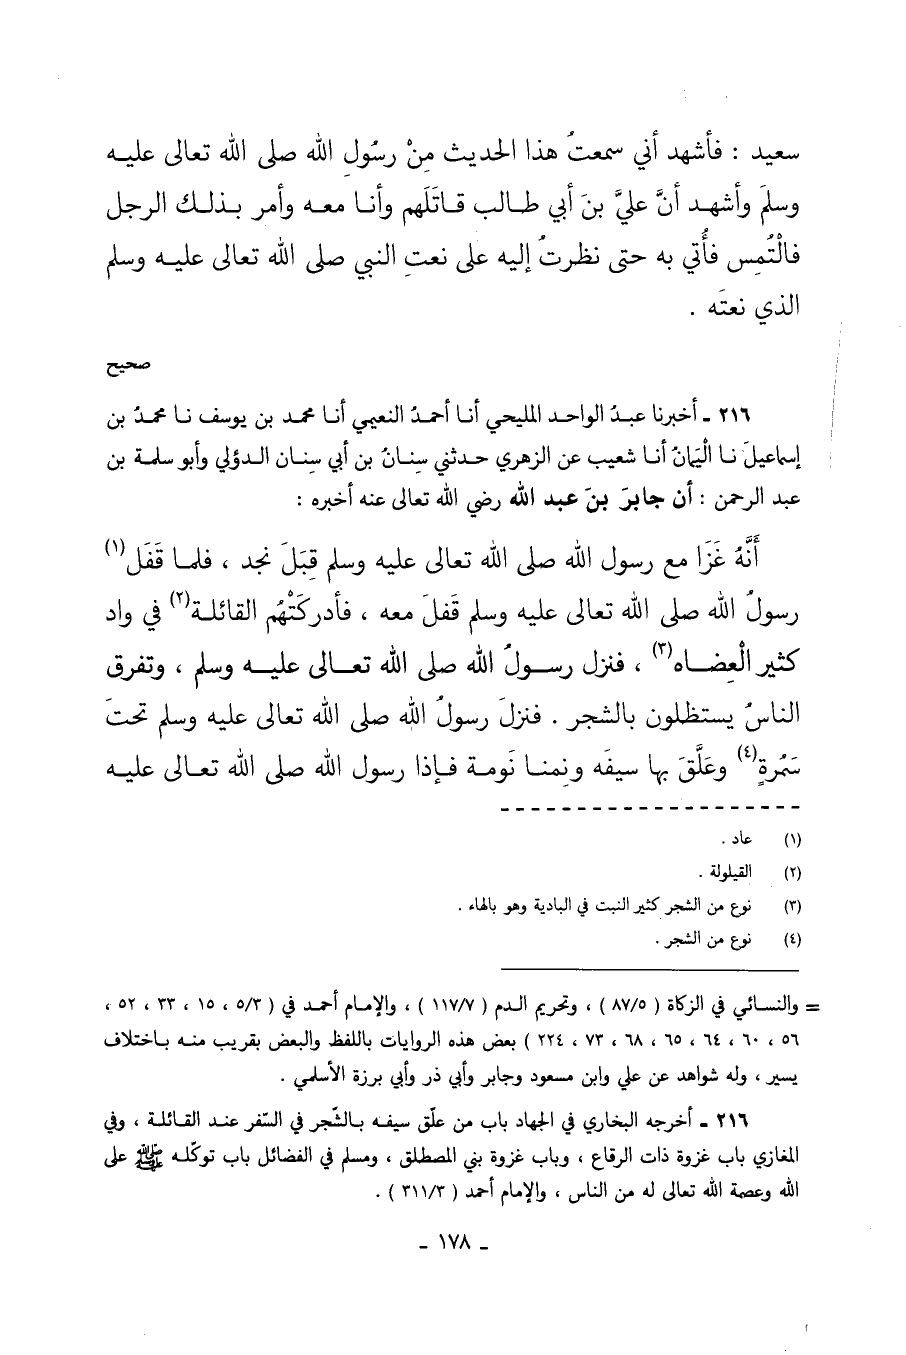 سعيد : فأشهد أني سمعتُ هذا الحديث مِنْ رسُولِ الله صلى الله تعالى عليه
وسلمَ وأشهد أنَّ عليَّ بنَ أبي طالب قاتَلَهم وأنا معه وأمر بذلك الرجل
فالْتُمِس فأُتي به حتى نظرتُ إليه على نعتِ النبي صلى الله تعالى عليه وسلم
الذي نعتَه .
صحيح
٢١٦ ـ أخبرنا عبدُ الواحد المليحي أنا أحمدُ النعيمي أنا محمد بن يوسف نا محمدُ بن
إسماعيلَ نا الْيَمانُ أنا شعيب عن الزهري حدثني سِنانُ بن أبي سِنان الدؤلي وأبو سلمة بن
عبد الرحمن : أن جابرَ بنَ عبد الله رضي الله تعالى عنه أخبره :
أَنَّهُ غَزَا مع رسول الله صلى الله تعالى عليه وسلم قِبَلَ نجد ، فلما قَفَل(١)
رسولُ الله صلى الله تعالى عليه وسلم قَفلَ معه ، فأدركَتْهُم القائلة(٢) في واد
كثير الْعِضاه(٣) ، فنزل رسولُ الله صلى الله تعالى عليه وسلم ، وتفرق
الناسُ يستظلون بالشجر . فنزلَ رسولُ الله صلى الله تعالى عليه وسلم تحتَ
سَمُرةٍ(٤) وعَلَّقَ بها سيفَه ونِمنا نَومة فإذا رسول الله صلى الله تعالى عليه
(١) عاد .
(٢) القيلولة .
(٣) نوع من الشجر كثير النبت في البادية وهو بالهاء .
(٤) نوع من الشجر .
= والنسائي في الزكاة ( ٨٧/٥ ) ، وتحريم الدم ( ١١٧/٧ ) ، والإمام أحمد في ( ٥/٣ ، ١٥ ، ٣٣ ، ٥٢ ،
٥٦ ، ٦٠ ، ٦٤ ، ٦٥ ، ٦٨ ، ٧٣ ، ٢٢٤ ) بعض هذه الروايات باللفظ والبعض بقريب منه باختلاف
يسير ، وله شواهد عن علي وابن مسعود وجابر وأبي ذر وأبي برزة الأسلمي .
٢١٦ ـ أخرجه البخاري في الجهاد باب من علّق سيفه بالشّجر في السّفر عند القائلة ، وفي
المغازي باب غزوة ذات الرقاع ، وباب غزوة بني المصطلق ، ومسلم في الفضائل باب توكّله ﷺ على
الله وعصمة الله تعالى له من الناس ، والإمام أحمد ( ٣١١/٣ ) .
ـ ١٧٨ ـ